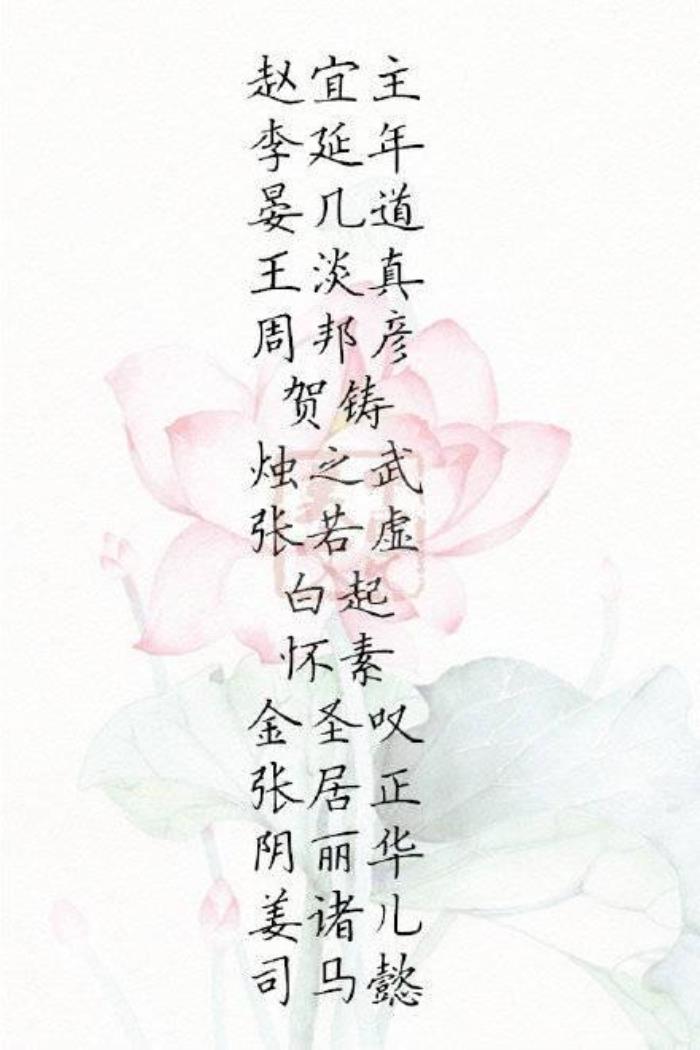 赵宜主
李延年
晏几道
王淡真
周邦彦
贺铸
烛之武
张若虚
白起
怀素
金圣叹
张居正
阴丽华
姜诸儿
司马懿